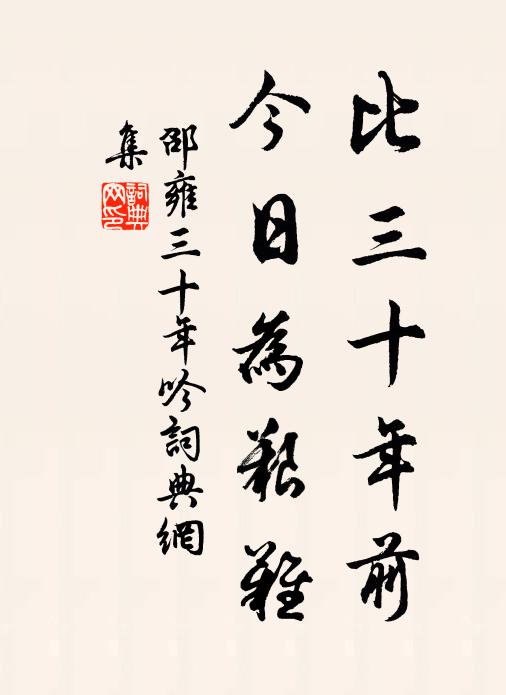 比三十年前
今日為艱難
邵雍三十年吟詞典網
集
詞典
网印